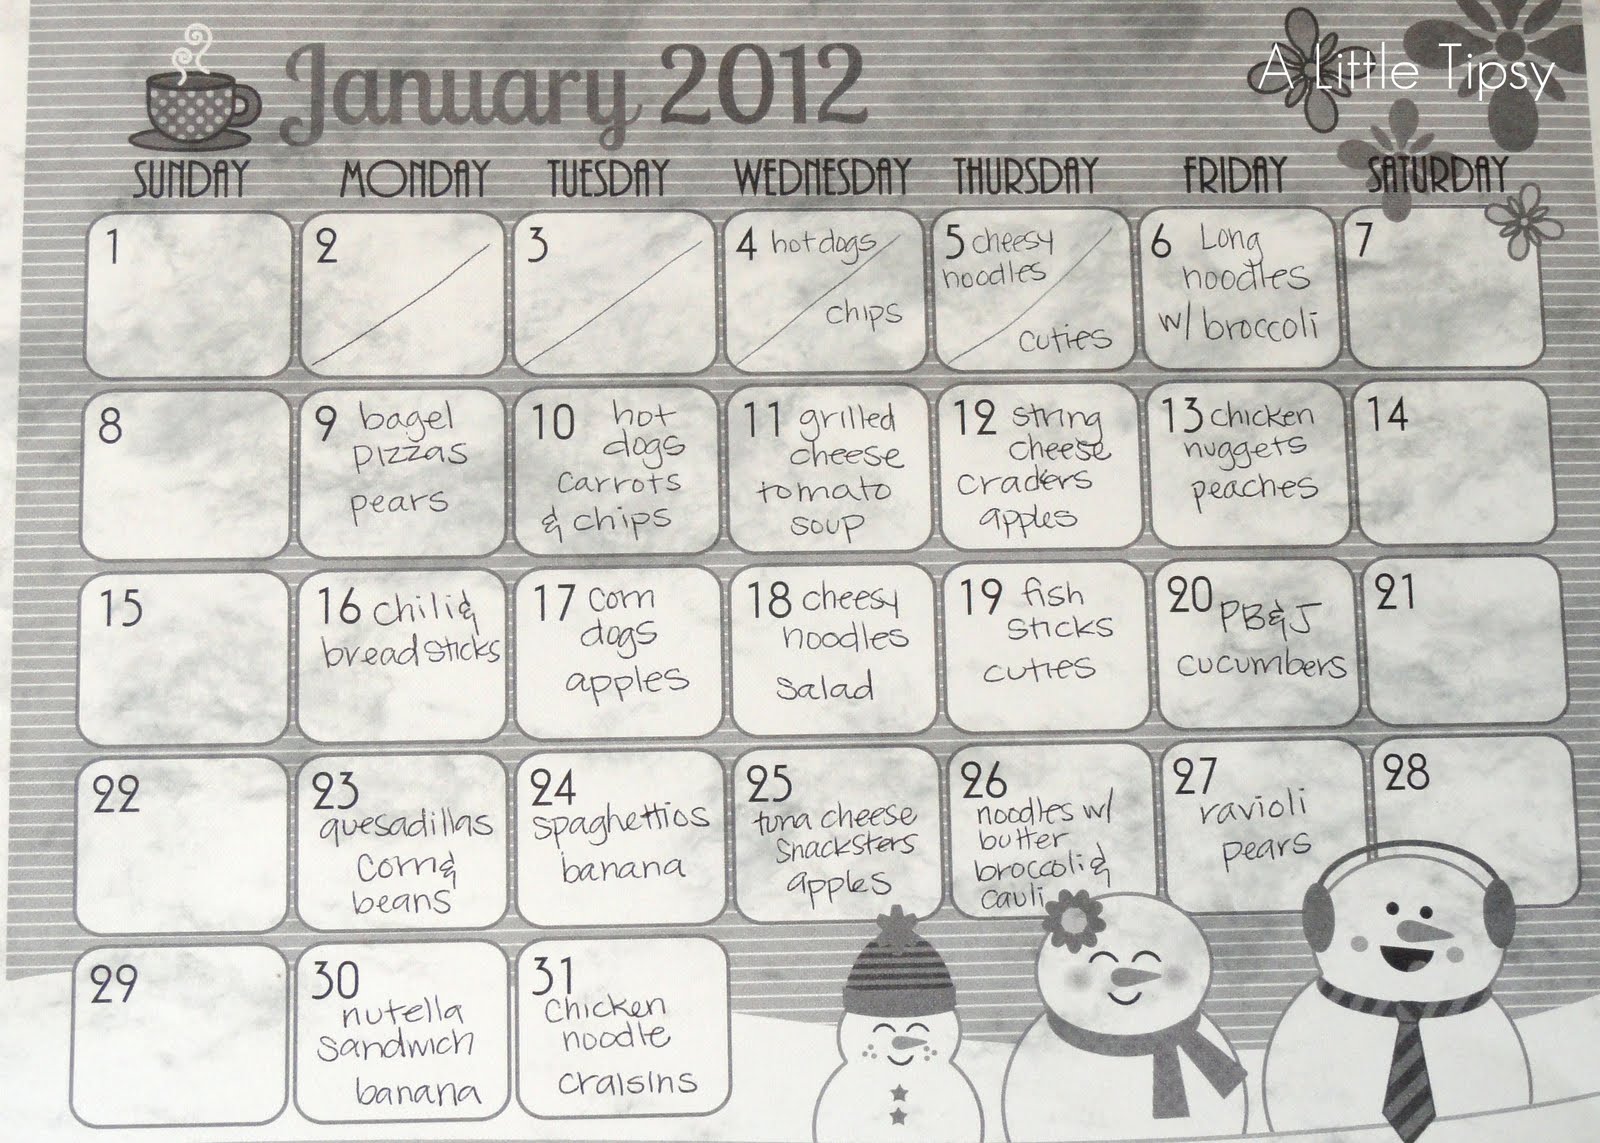 January 2012
A Little Tipsy
SUNDAY MONDAY TUESDAY WEDNESDAY THURSDAY FRIDAY SATURDAY
1
2
3
4 hot dogs
chips
5 cheesy
noodles
cuties
6 Long
noodles
w/ broccoli
7
8
9 bagel
pizzas
pears
10 hot
dogs
carrots
& chips
11 grilled
cheese
tomato
soup
12 string
cheese
craders
apples
13 chicken
nuggets
peaches
14
15
16 chili &
breadsticks
17 corn
dogs
apples
18 cheesy
noodles
salad
19 fish
sticks
cuties
20 PB&J
cucumbers
21
22
23
quesadillas
corn &
beans
24
spaghettios
banana
25
tuna cheese
Snacksters
apples
26
noodles w/
butter
broccoli &
cauli
27
ravioli
pears
28
29
30
nutella
sandwich
banana
31
Chicken
noodle
craisins